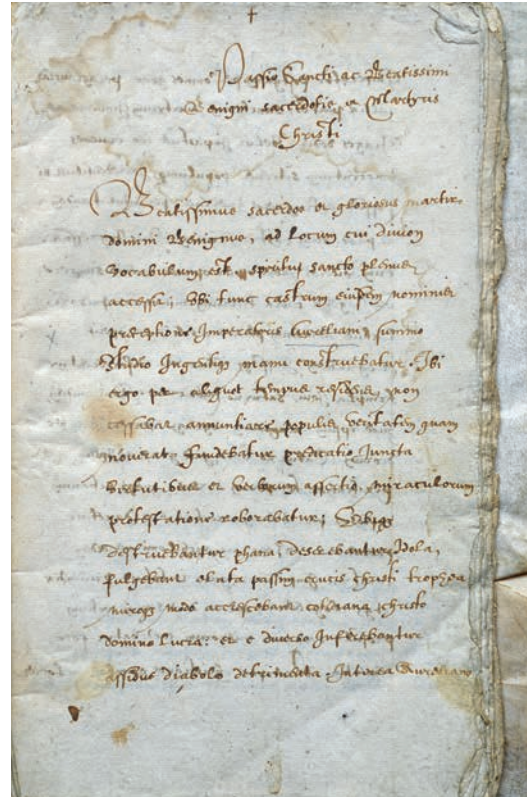 Passio Sancti ac Beatissimi
Benigni sacerdotis et Martyris
Christi
Beatissimus sacerdos et gloriosus martir
domini Benignus, ad locum cui divion
vocabulum est, spiritu sancto plenus
accessit, ubi tunc castrum eiusdem nominis
præceptione Imperatoris Aureliani summo
studio manu construebatur. Ibi
ergo per aliquot tempus residens, non
cessabat annuntiare populis veritatem quam
noverat. fundebatur predicatio Juncta
virtutibus et verborum assertio miraculorum
protestatione roborabatur;
destruebantur phana, deserebantur Idola,
fulgebant passim crucis christi trophea
modo accrescebant christo
domino lucra: et e diverso Inferebantur
diabolo detrimenta. Interea